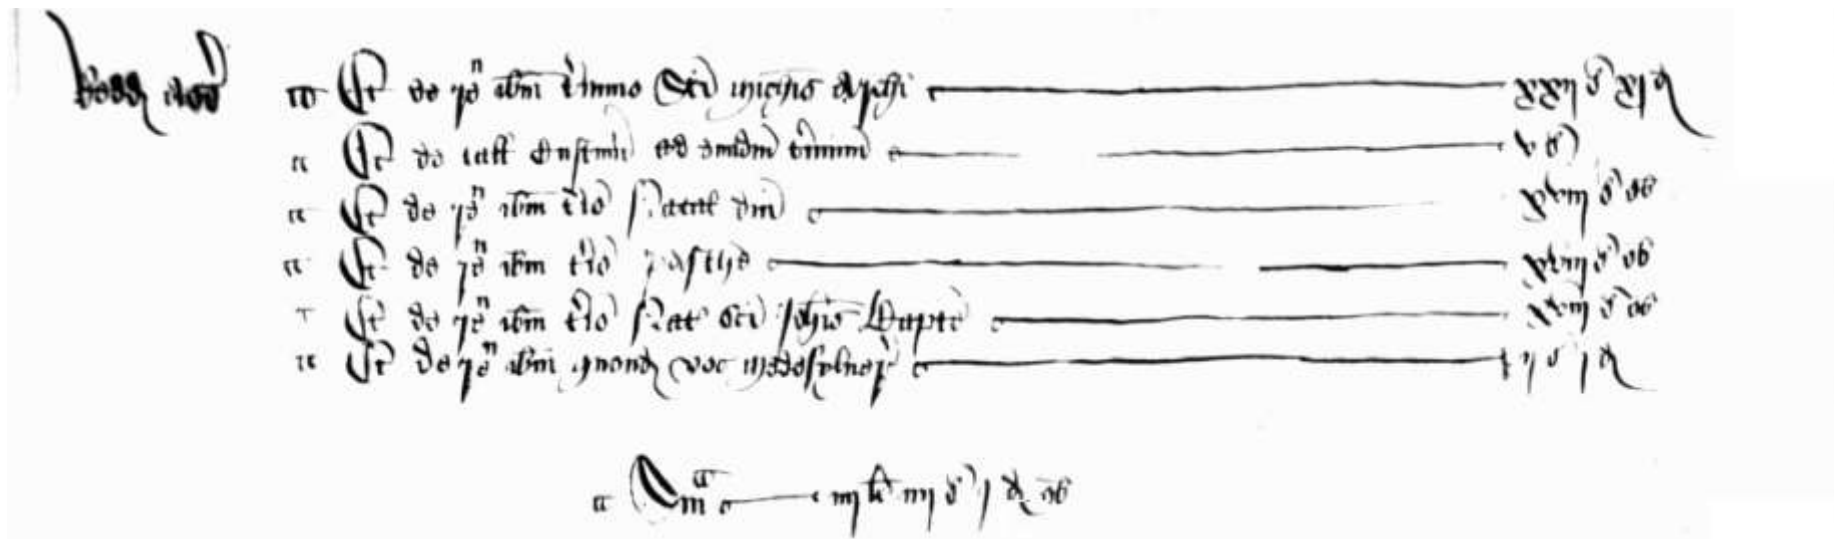 Et de re^n ibm t'mino Sci Michis Archi xxij s xj d
Et de tall Custum ad eundem t'minum v s
Et de re^n ibm t'io Natal dni xviij s ob
Et de re^n ibm t'io Pasche xviij s ob
Et de re^n ibm t'io Nat Sci Johis Bapte xviij s ob
Et de re^n ibm quond voc ij s j d
Sm^a iiij li iiij s j d ob